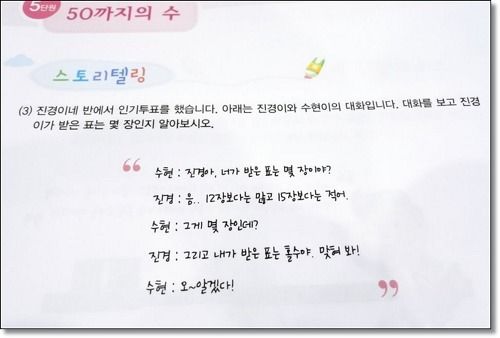 5단원 50까지의 수
스토리텔링
(3) 진경이네 반에서 인기투표를 했습니다. 아래는 진경이와 수현이의 대화입니다. 대화를 보고 진경
이가 받은 표는 몇 장인지 알아보시오.
“
수현 : 진경아, 너가 받은 표는 몇 장이야?
진경 : 음.. 12장보다는 많고 15장보다는 적어.
수현 : 그게 몇 장인데?
진경 : 그리고 내가 받은 표는 홀수야. 맞혀 봐!
수현 : 오~알겠다!
”